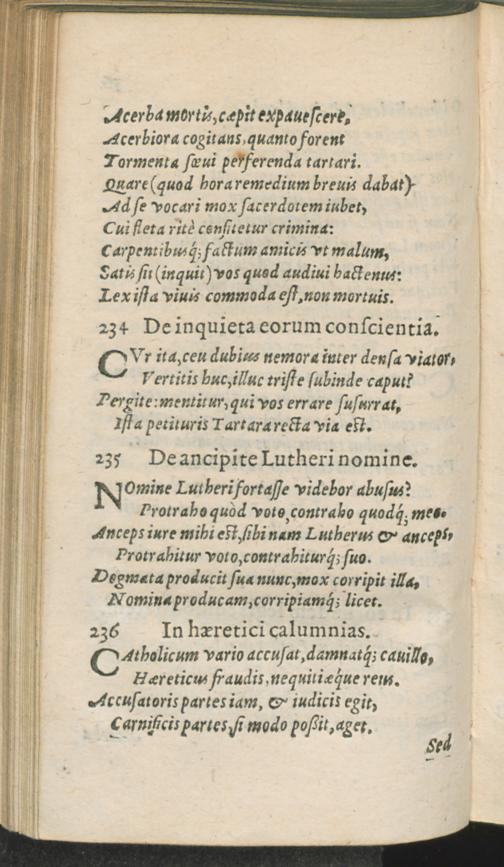 Acerba mortis, cæpit expauescere,
Acerbiora cogitans, quanto forent
Tormenta sæui perferenda tartari.
Quare (quod hora remedium breuis dabat)
Ad se vocari mox sacerdotem iubet,
Cui fleta ritè confitetur crimina:
Carpentibusq́; factum amicis vt malum,
Satis sit (inquit) vos quod audiui hactenus:
Lex ista viuis commoda est, non mortuis.
234 De inquieta eorum conscientia.
CVr ita, ceu dubius nemora inter densa viator,
Vertitis huc, illuc triste subinde caput?
Pergite: mentitur, qui vos errare susurrat,
Ista petituris Tartara recta via est.
235 De ancipite Lutheri nomine.
NOmine Lutheri fortasse videbor abusus?
Protraho quòd voto, contraho quodq́; meo.
Anceps iure mihi est, sibi nam Lutherus & anceps,
Protrahitur voto, contrahiturq́; suo.
Dogmata producit sua nunc, mox corripit illa,
Nomina producam, corripiamq́; licet.
236 In hæretici calumnias.
CAtholicum vario accusat, damnatq́; cauillo,
Hæreticus fraudis, nequitiæque reus.
Accusatoris partes iam, & iudicis egit,
Carnificis partes, si modo poßit, aget.
Sed